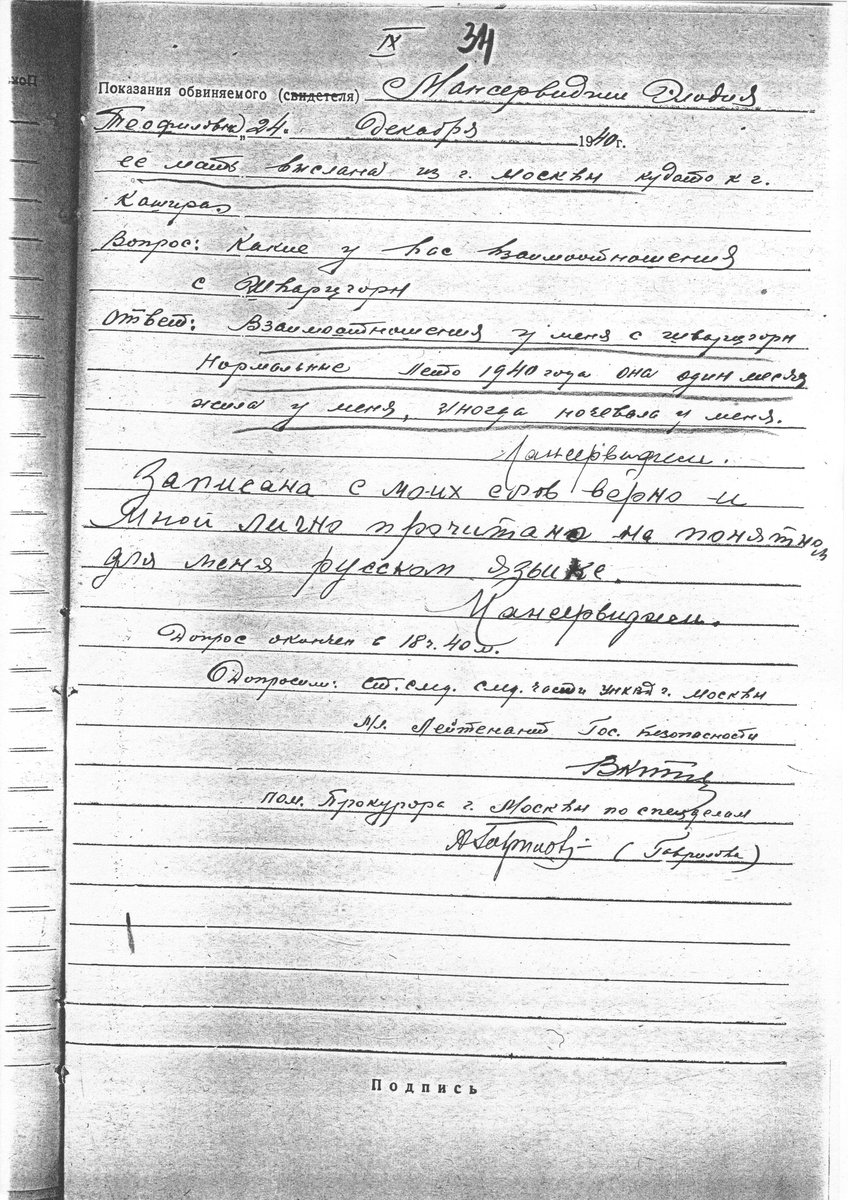 IX 34
Показания обвиняемого (свидетеля) Мансервиджи Клодия
Теофиловн „24. декабря 1940 г.
ее мать выслана из г. Москвы кудато к г.
Кашира
Вопрос: Какие у вас взаимоотношения
с Шварцгорн
Ответ: Взаимоотношения у меня с Шварцгорн
нормальные Лето 1940 года она один месяц
жила у меня, иногда ночевала у меня.
Мансервиджи.
Записана с моих слов верно и
мной лично прочитано на понятном
для меня русском языке.
Мансервиджи.
Допрос окончен в 18 ч. 40 м.
Допросили: Ст. след. след. части УНКВД г. Москвы
Мл. Лейтенант Гос. Безопасности
пом. Прокурора г. Москвы по спецделам
(Гаврилова)
Подпись